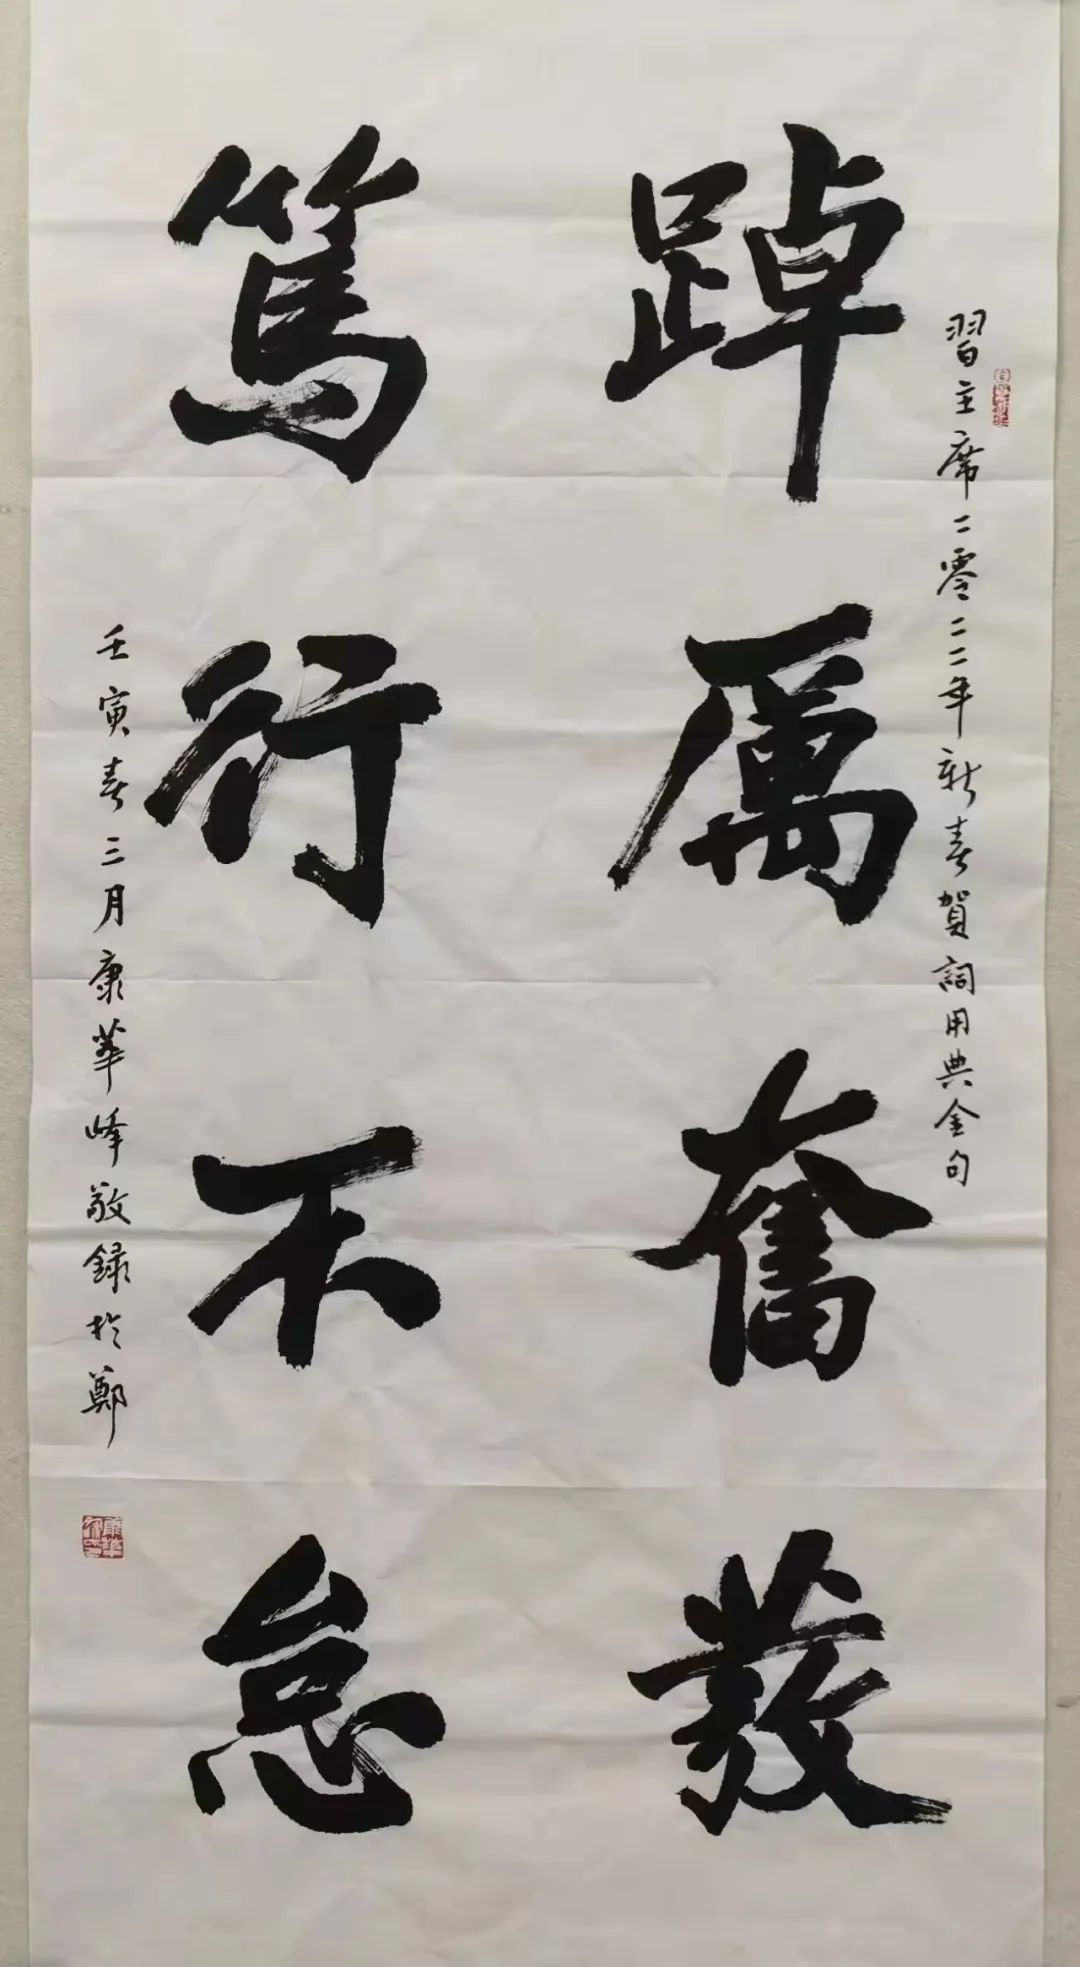 習主席二零二二年新春賀詞用典金句
踔厲奮發
篤行不怠
壬寅春三月康華峰敬録於鄭